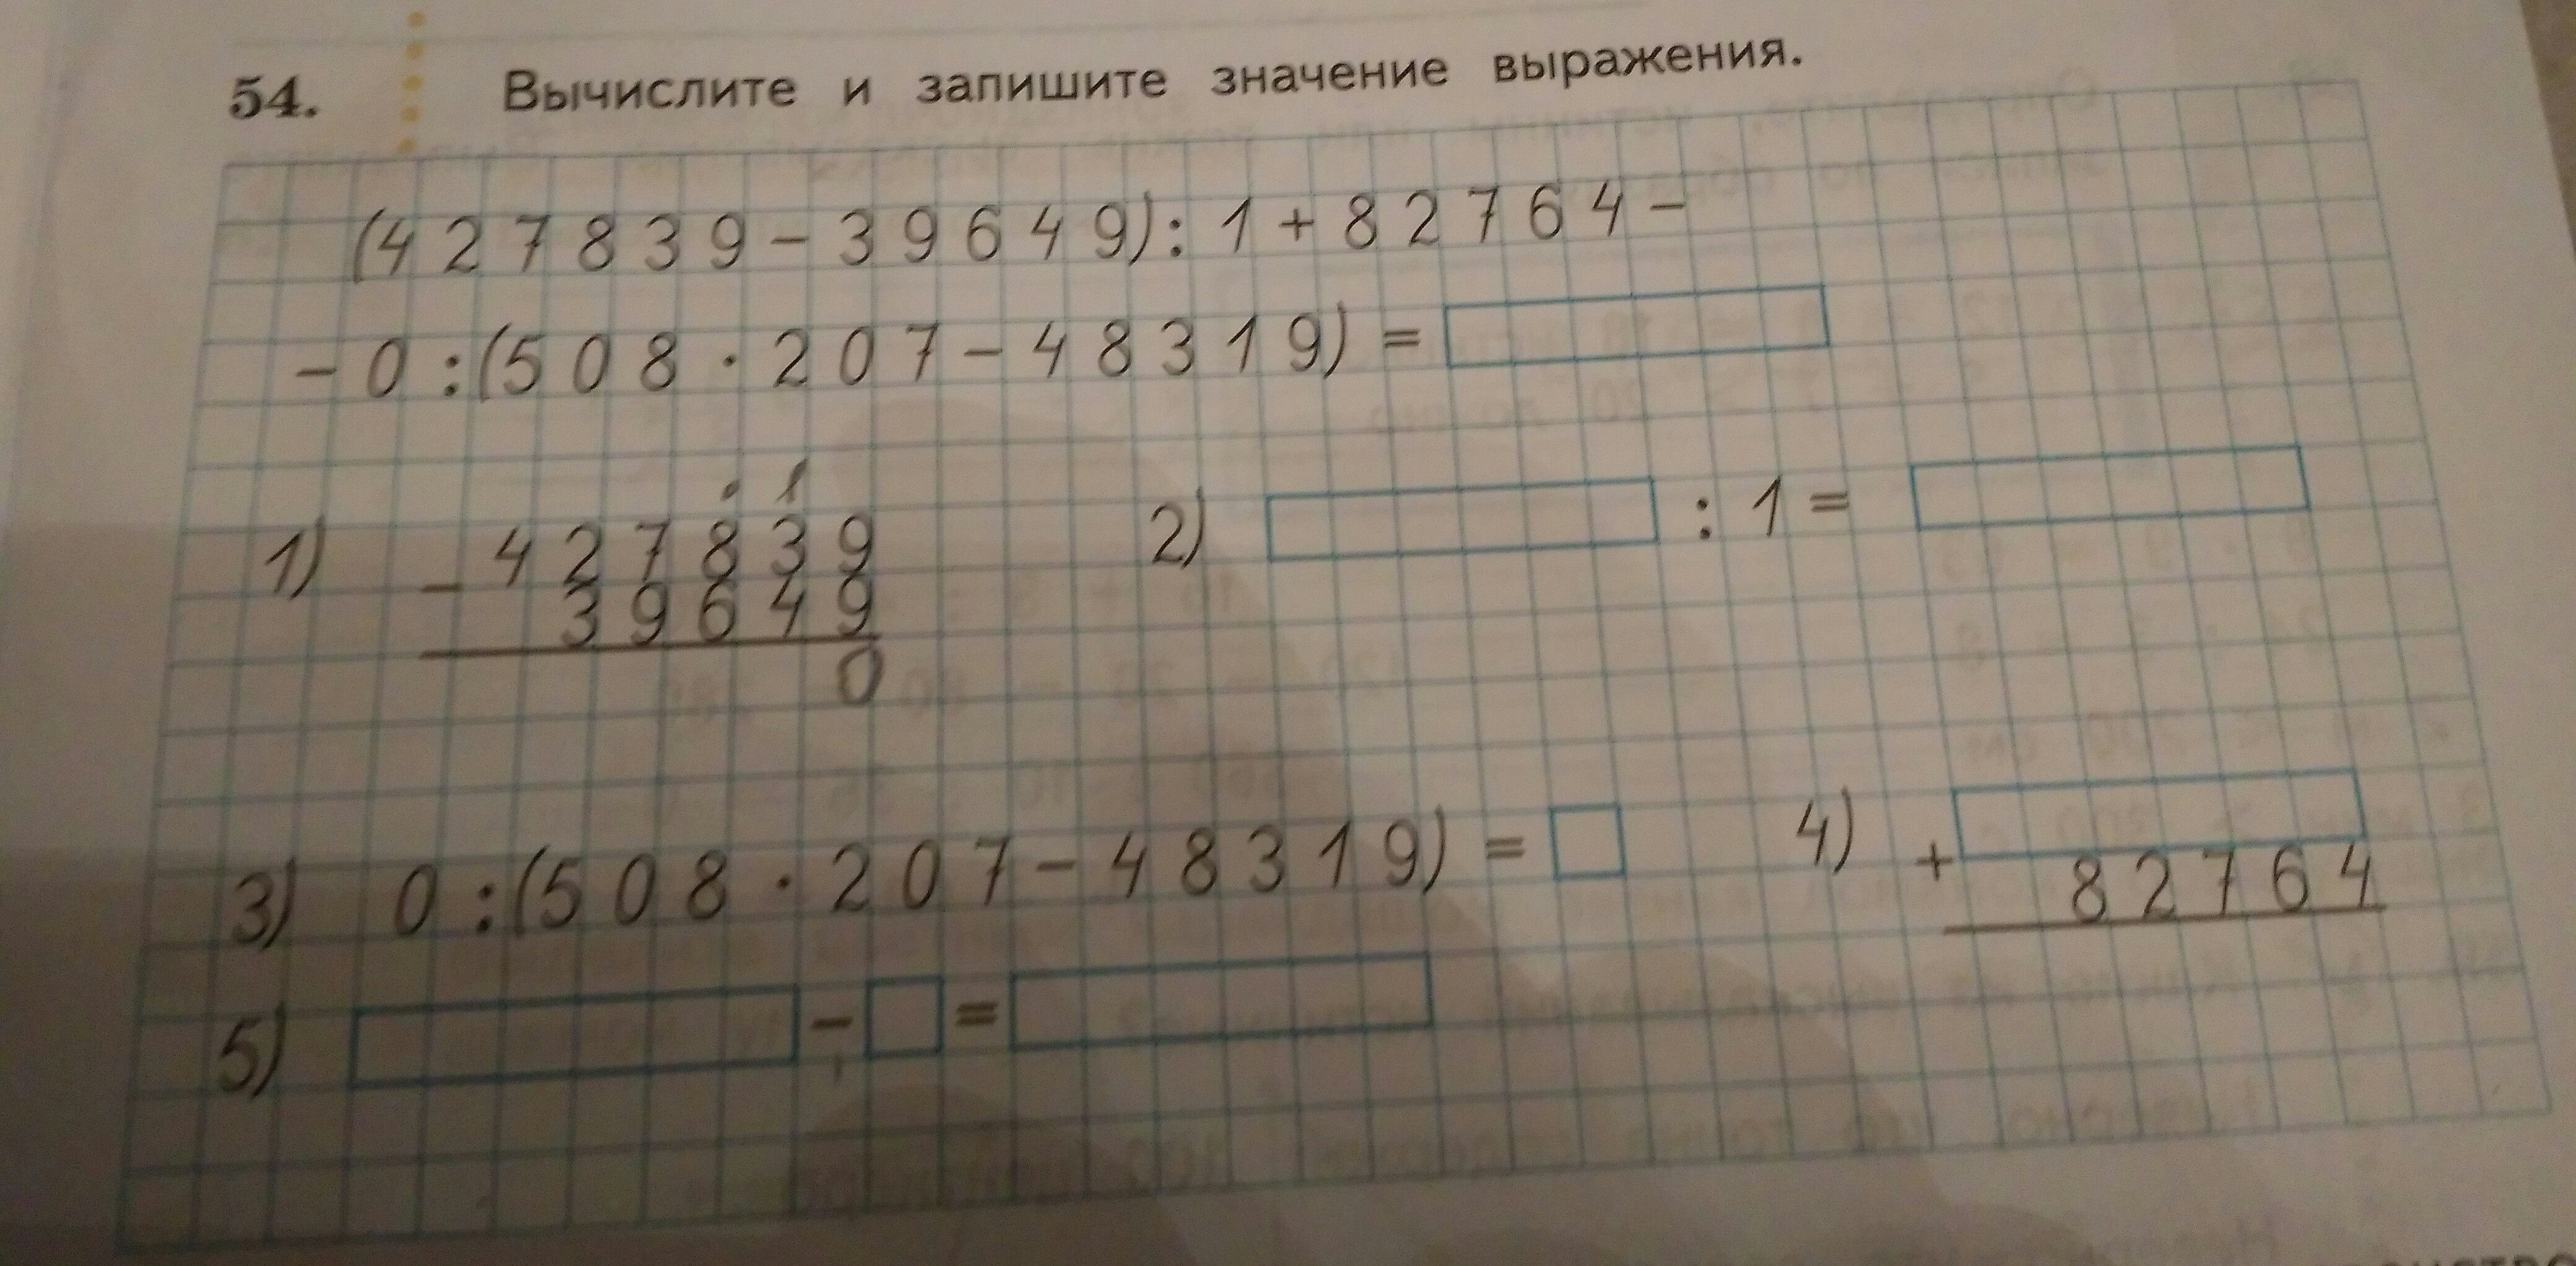 54. Вычислите и запишите значение выражения.
(427839-39649):1+82764-
-0:(508·207-48319)=
1) -427839
39649
0
2) :1=
3) 0:(508·207-48319)=
4) +
82764
5) - =